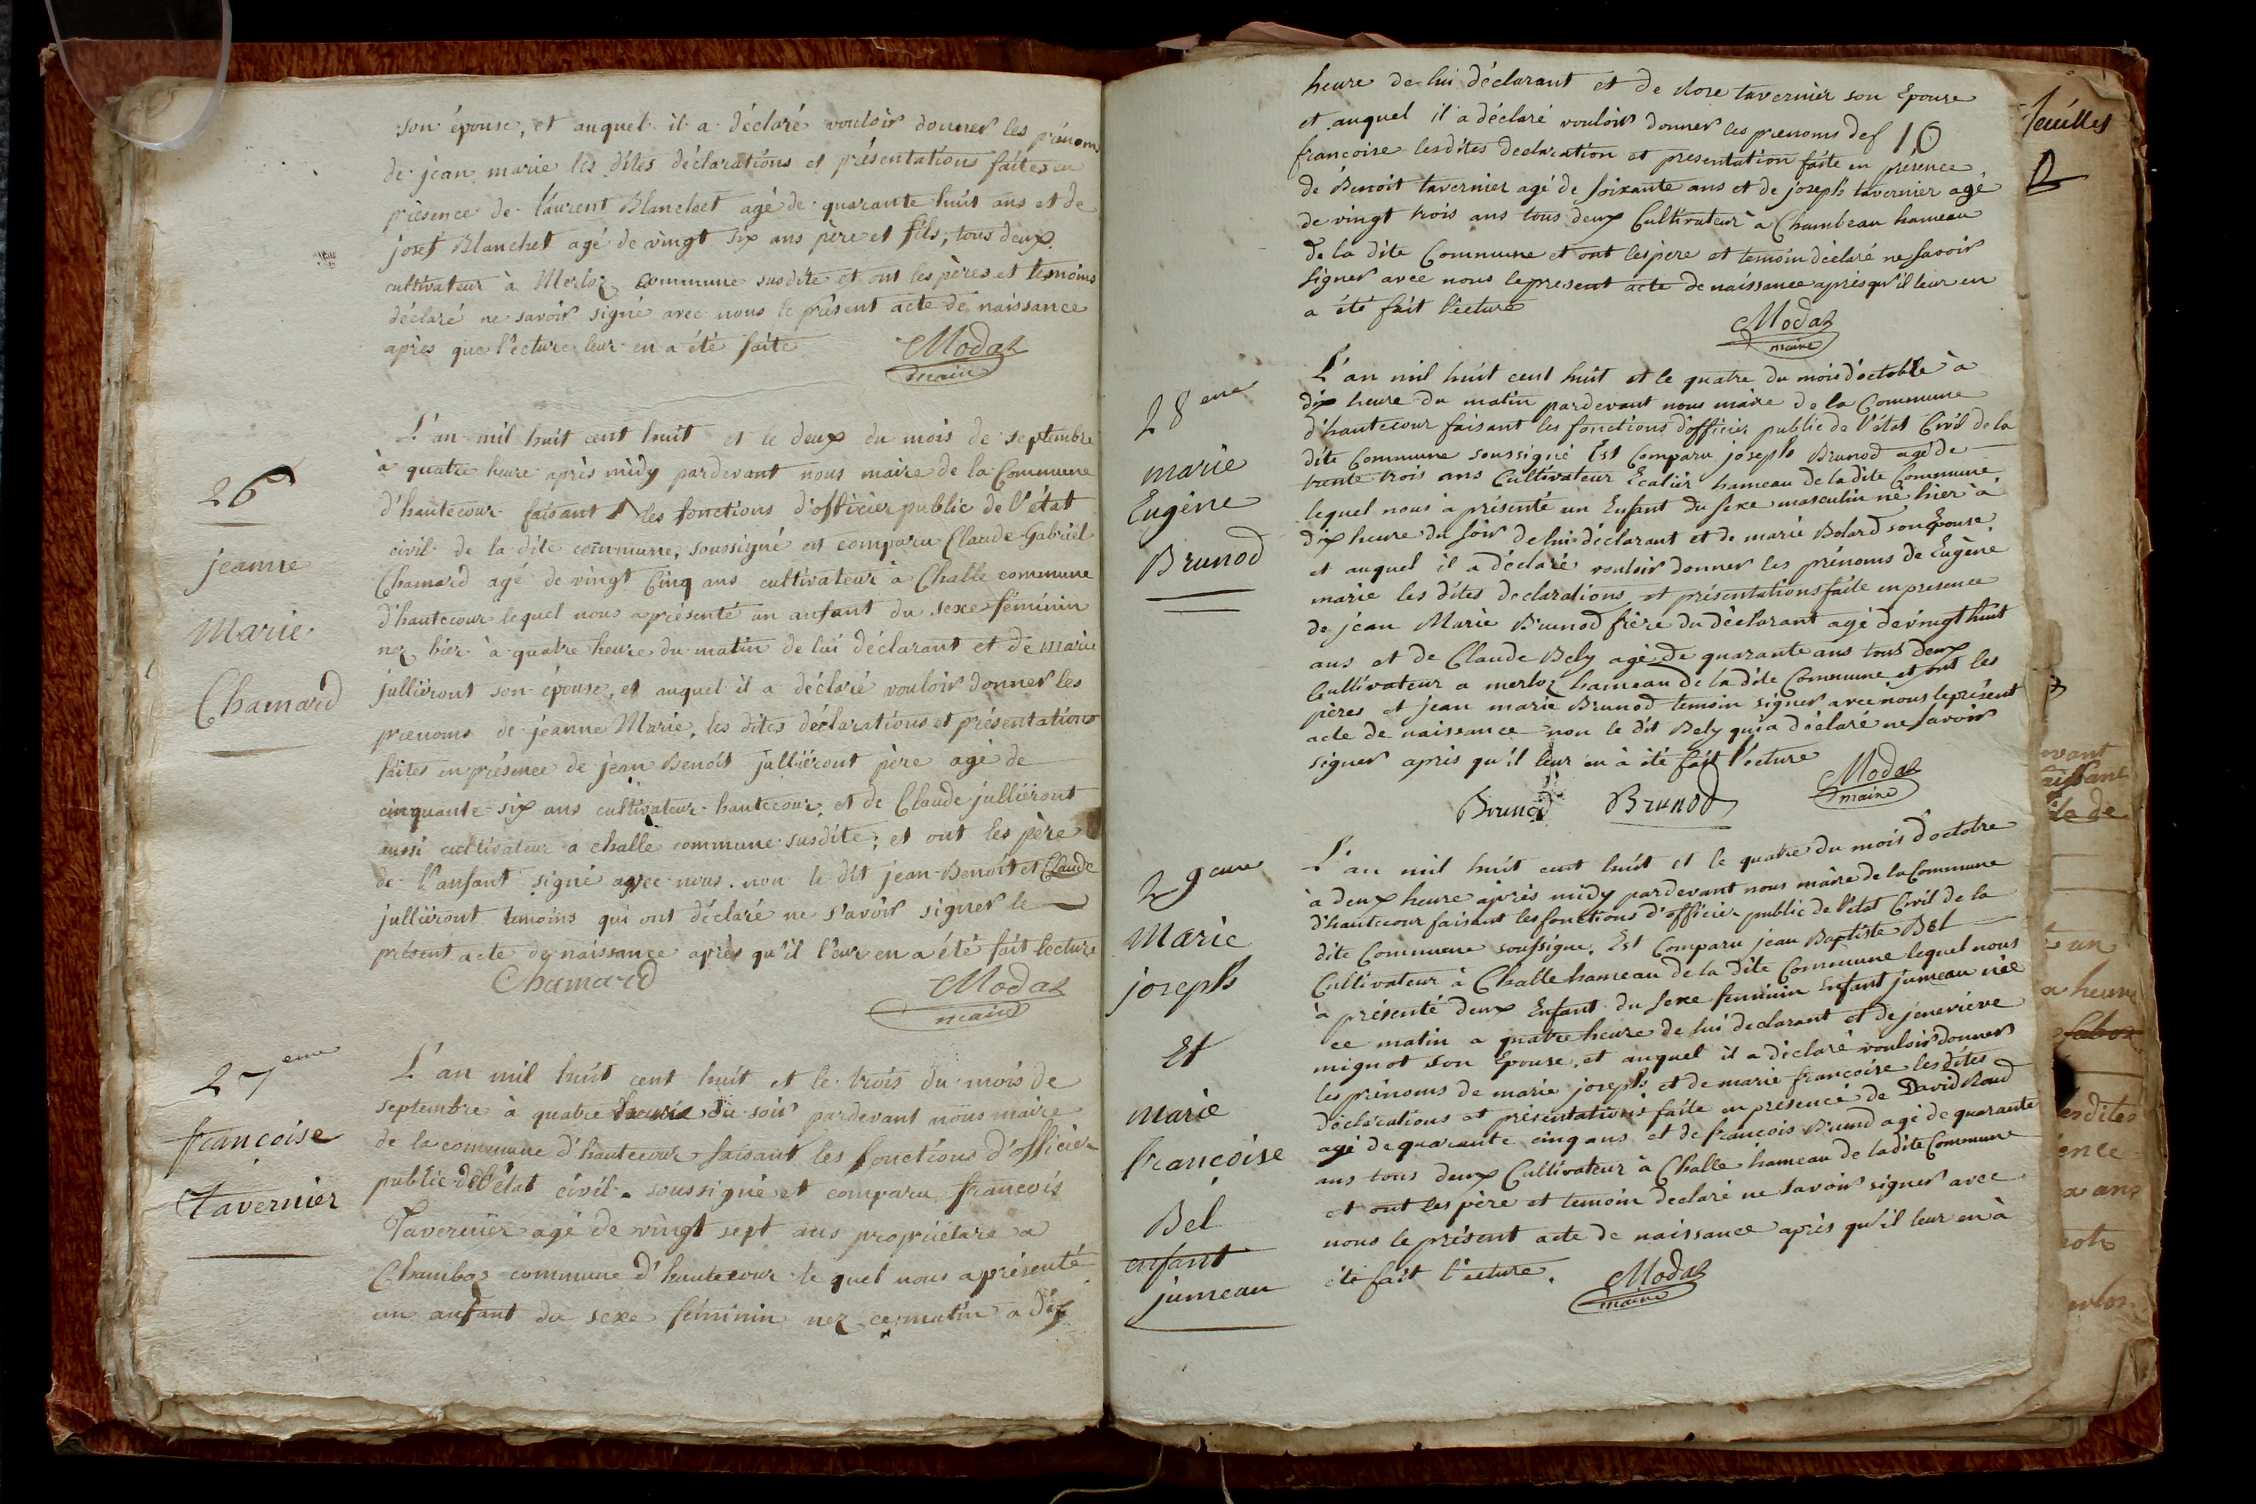 son épouse, et auquel il a déclaré vouloir donner les prénoms
de jean marie les dites déclarations et présentations faites en
présence de laurent Blanchet agé de quarante huit ans et de
josef Blanchet agé de vingt six ans père et fils, tous deux
cultivateur à Merloz commune susdite et ont les pères et temoins
déclaré ne savoir signé avec nous le présent acte de naissance
après que l'ecture leur en a été faite
Modaz
maire
26
jeanne
Marie
Chamard
L'an mil huit cent huit et le deux du mois de septembre
à quatre heure après midy pardevant nous maire de la Commune
d'hautecour faisant les fonctions d'officier public de l'état
civil de la dite commune, soussigné est comparu Claude Gabriel
Chamard agé de vingt Cinq ans cultivateur à Challe commune
d'hautecour lequel nous a présenté un anfant du sexe féminin
nez hier à quatre heure du matin de lui déclarant et de marie
julliéront son épouse, et auquel il a déclaré vouloir donner les
prœnoms de jeanne Marie, les dites déclarations et présentations
faites en présence de jean Benoit julliéront père agé de
cinquante six ans cultivateur hautecour et de Claude julliéront
aussi cultivateur à challe commune susdite; et ont les père
de l'anfant signé avec nous non le dit jean Benoit et Claude
julliéront temoins qui ont déclaré ne s'avoir signer le
présent acte de naissance après qu'il l'eur en a été fait lecture
Chamard
Modaz
maire
27eme
françoise
Tavernier
L'an mil huit cent huit et le trois du mois de
septembre à quatre heure du soir pardevant nous maire
de la commune d'hautecour faisant les fonctions d'officier
public de l'état civil soussigné et comparu françois
Tavernier agé de vingt sept ans propriétare a
Chamboz commune d'hautecour le quel nous a présenté
un anfant du sexe féminin nez ce matin a dix
heure de lui déclarant et de Rose tavernier son Epouse
et auquel il a déclaré vouloir donner les prenoms de
10
francoise lesdites declaration et presentation faite en présence
de Benoit tavernier agé de soixante ans et de joseph tavernier agé
de vingt trois ans tous deux Cultivateur à Chambeau hameau
de la dite Commune et ont les père et temoin déclaré ne savoir
signer avec nous le present acte de naissance après qu'il leur en
a été fait l'ecture
Modaz
maire
28eme
marie
Eugène
Brunod
L'an mil huit cent huit et le quatre du mois d'octobre à
dix heure du matin pardevant nous maire de la Commune
d'hautecour faisant les fonctions d'officier public de l'état Civil de la
dite Commune soussigné Est Comparu joseph Brunod agé de
trente trois ans Cultivateur Ecalier hameau de la dite Commune
lequel nous à présenté un Enfant du sexe masculin né hier à
dix heure du soir de lui déclarant et de marie Bolard son Epouse,
et auquel il a déclaré vouloir donner les prénoms de Eugène
marie les dites declarations et présentations faite en presence
de jean Marie Brunod frère du déclarant agé de vingt huit
ans et de Claude Bely agé de quarante ans tous deux
Cultivateur a merloz hameau de la dite Commune et ont les
pères et jean marie Brunod temoin signer avec nous le présent
acte de naissance non le dit Bely qui a déclaré ne savoir
signer après qu'il leur en à été fait l'ecture
Brunod
Brunod
Modaz
maire
29eme
Marie
joseph
Et
Marie
françoise
Bel
enfant
jumeau
L'an mil huit cent huit et le quatre du mois d'octobre
à deux heure après midy pardevant nous maire de la Commune
d'hautecour faisant les fonctions d'officier public de l'état Civil de la
dite Commune soussigné. Est Comparu jean Baptiste Bel
Cultivateur à Challe hameau de la dite Commune lequel nous
à présenté deux Enfant du sexe feminin Enfant jumeau née
ce matin a quatre heure de lui declarant et de jeneviève
mignot son Epouse, et auquel il a déclaré vouloir donner
les prénoms de marie joseph et de marie francoise les dites
déclarations et présentations faite en présence de David Roud
agé de quarante cinq ans et de francois Brund agé de quarante
ans tous deux Cultivateur à Challe hameau de la dite Commune
et ont les père et temoin declaré ne savoir signer avec
nous le présent acte de naissance après qu'il leur en à
été fait l'ecture.
Modaz
maire
feuillet